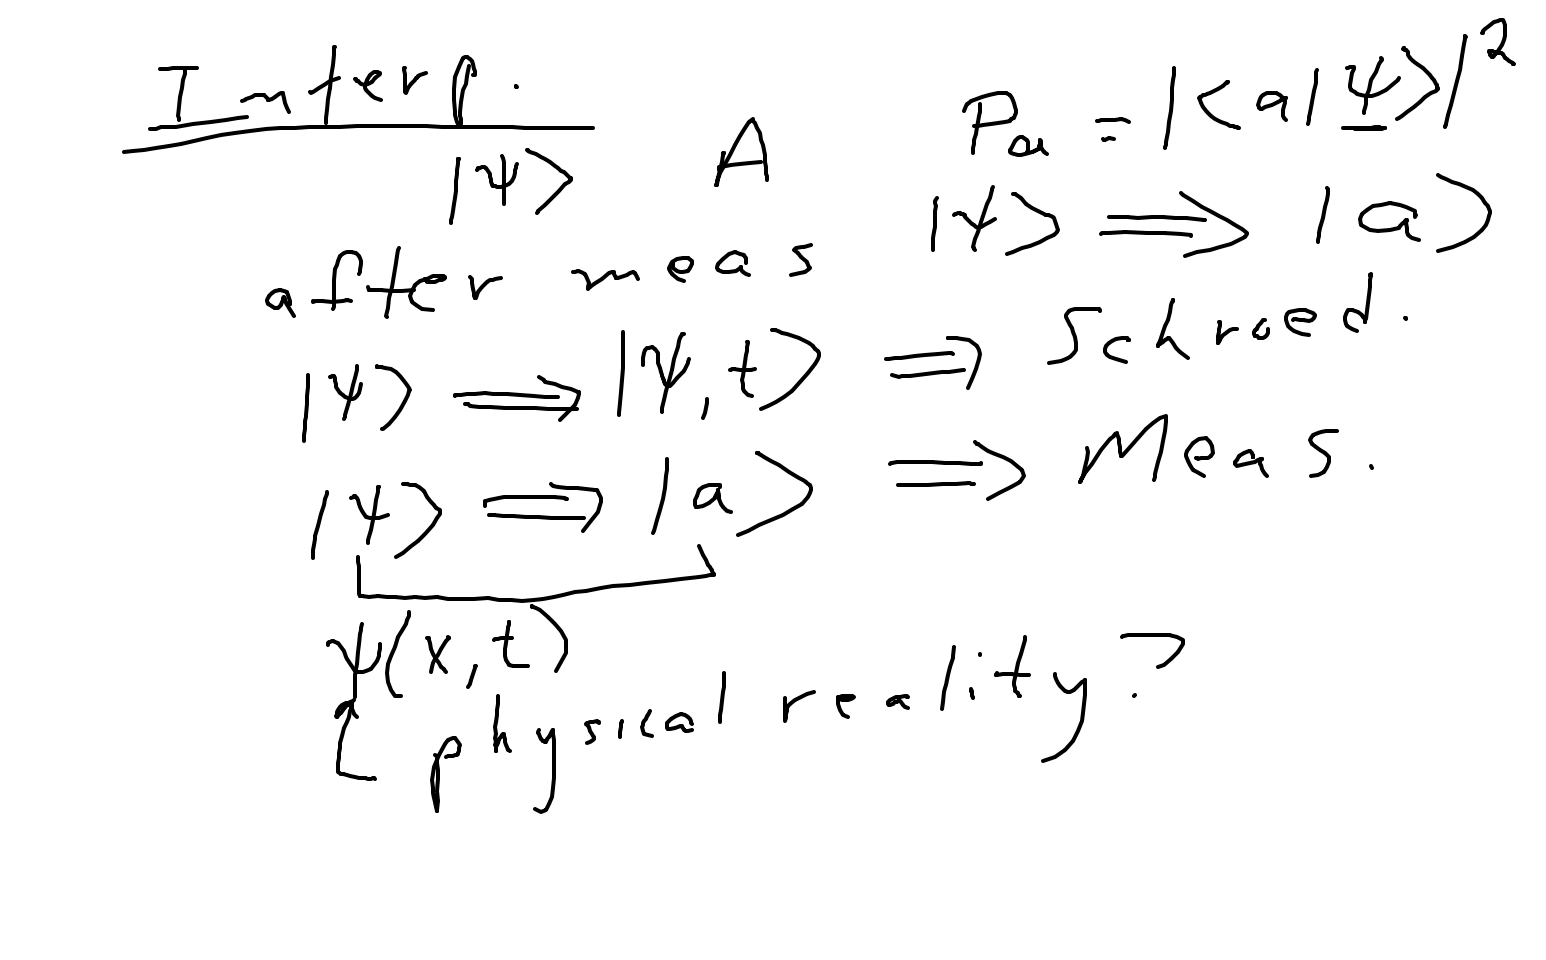 Interp.
|ψ⟩ A P_a = |⟨a|ψ⟩|²
after meas |ψ⟩ ⟹ |a⟩
|ψ⟩ ⟹ |ψ, t⟩ ⟹ Schroed.
|ψ⟩ ⟹ |a⟩ ⟹ Meas.
ψ(x, t)
physical reality?